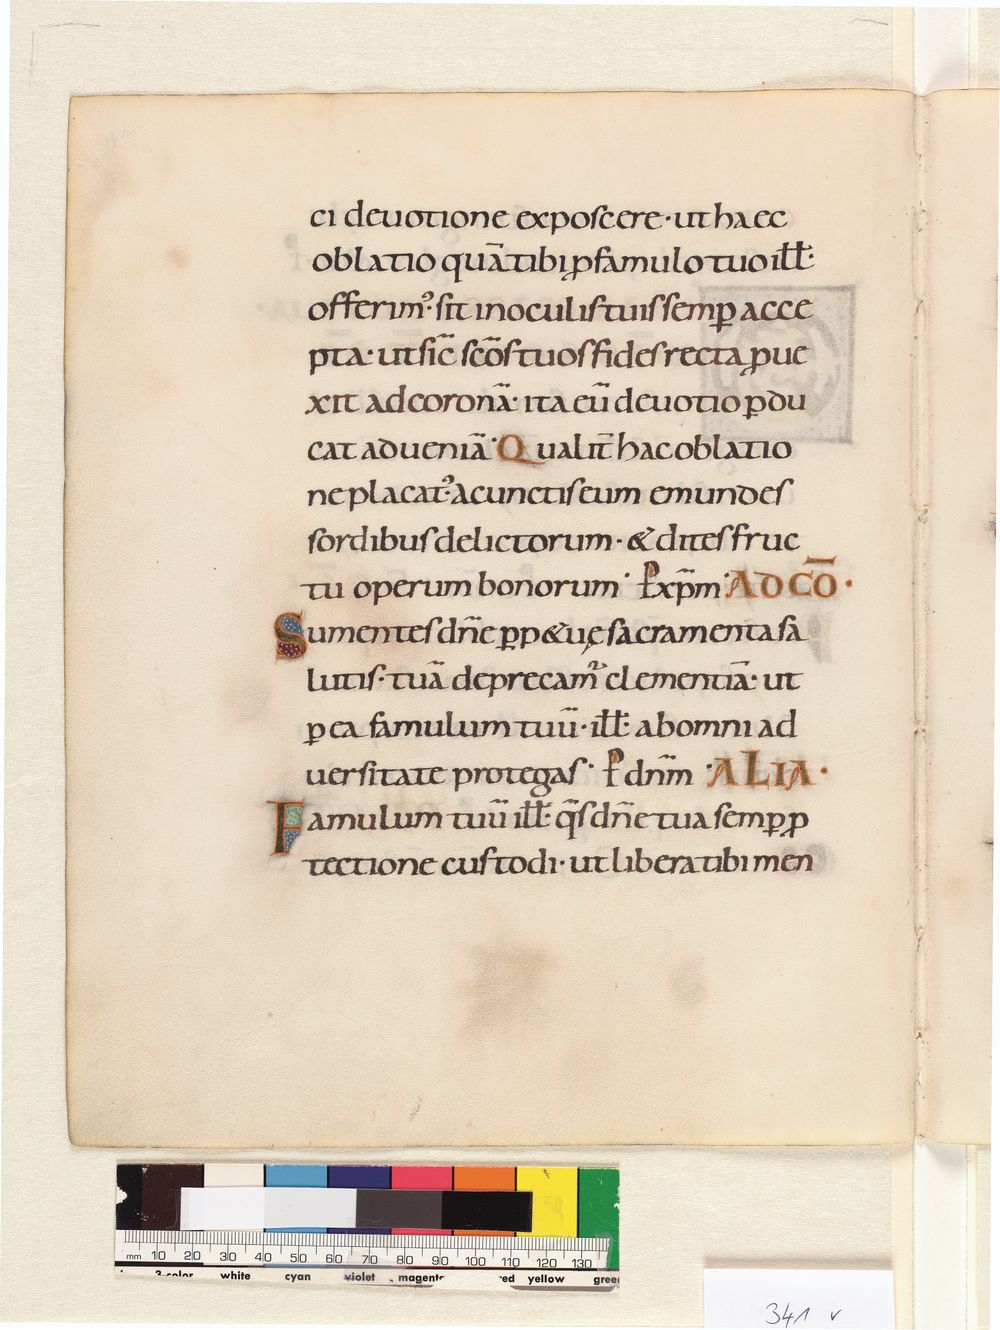 ci deuotione exposcere· ut haec
oblatio quā tibi ꝓ famulo tuo ill̅:
offerimꝰ· sit in oculis tuis semꝑ acce
pta· ut sic̄ sc̄os tuos fides recta ꝓue
xit ad coronā· ita eū deuotio ꝑdu
cat ad ueniā· Qualit̄ hac oblatio
ne placatꝰ· a cunctis eum emundes
sordibus delictorum· & dites fruc
tu operum bonorum· P xp̄m· AD CŌ·
Sumentes dn̄e ꝑp&uę sacramenta sa
lutis· tuā deprecamꝰ clementiā· ut
ꝑ ea famulum tuū· ill̅: ab omni ad
uersitate protegas· P dn̄m· ALIA·
Famulum tuū ill̅: q̄s dn̄e tua semꝑ ꝓ
tectione custodi· ut libera tibi men
mm 10 20 30 40 50 60 70 80 90 100 110 120 130
3-color white cyan violet magenta red yellow green
341 v